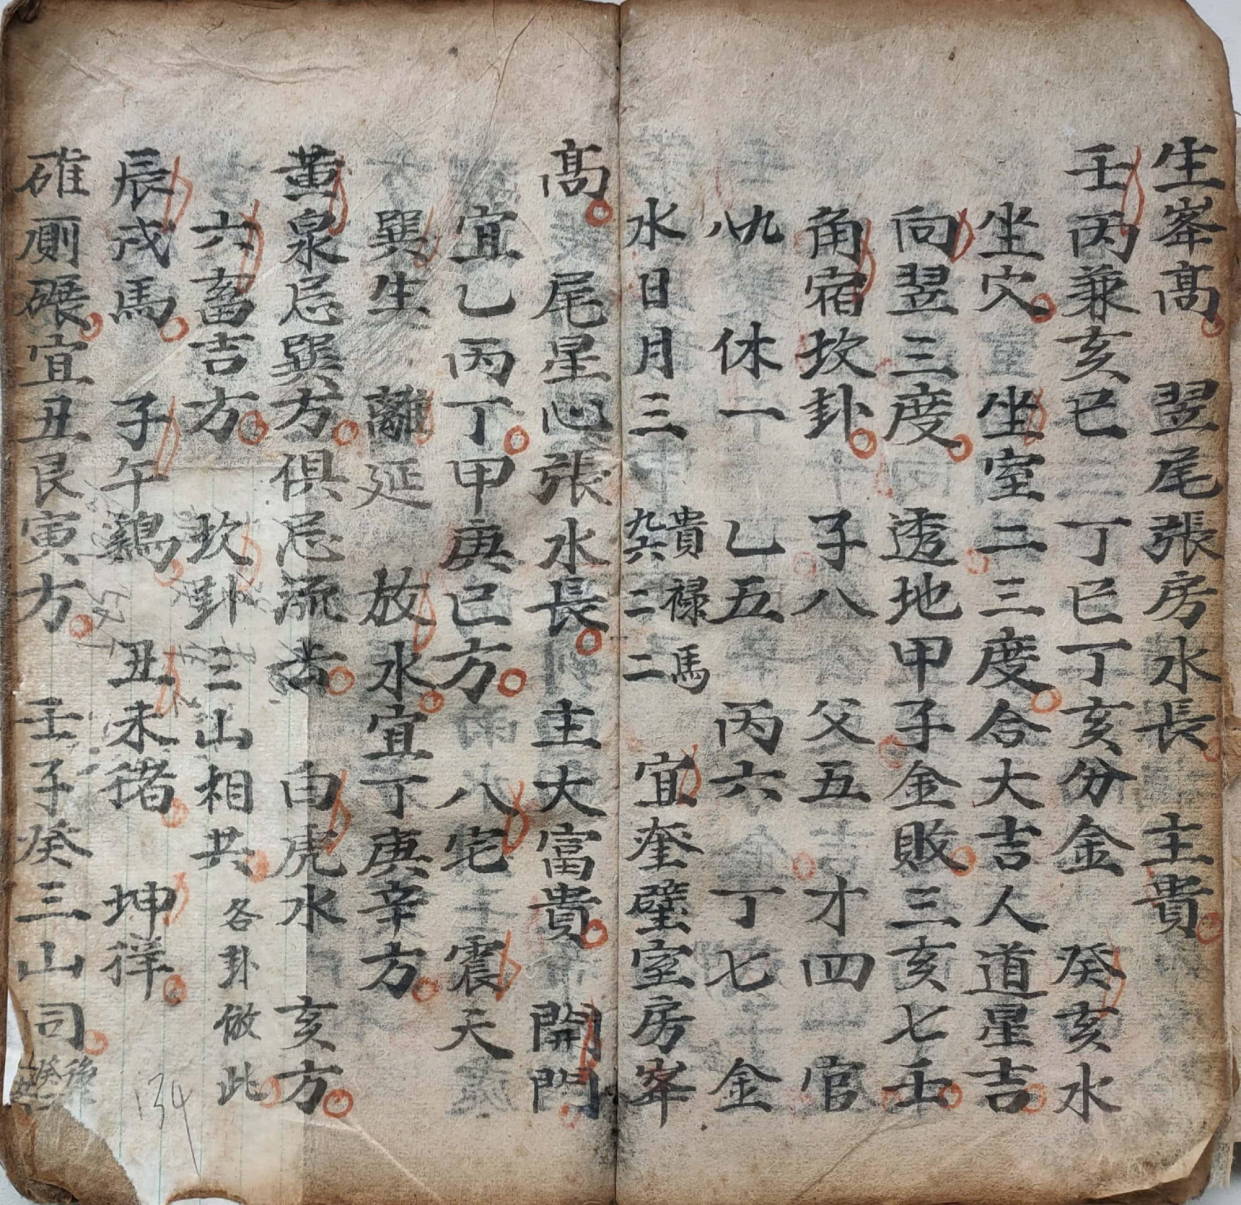 生峯高 翌尾張房水長 主貴
壬丙兼亥巳 丁巳丁亥分金 癸亥水
坐穴 坐室二三度合大吉人道星吉
向翌三度 透地甲子金敗三亥七壬
角宿坎卦 子八 父五 才四 官
九 八 休一 乙五 丙六 丁七 金
水日月三 貴祿馬 二二 宜奎璧室房峯
高 尾星心張水長 主大富貴 開門
宜乙丙丁甲庚巳方 八宅 震天
巽生 離延 放水宜丁庚辛方
黄泉忌巽方俱忌流去 白虎水 亥方
六畜吉方 坎卦三山相共 各卦倣此
辰戌馬 子午鷄 丑未猪 坤徉
碓厠碾宜丑艮寅方 壬子癸三山司
134